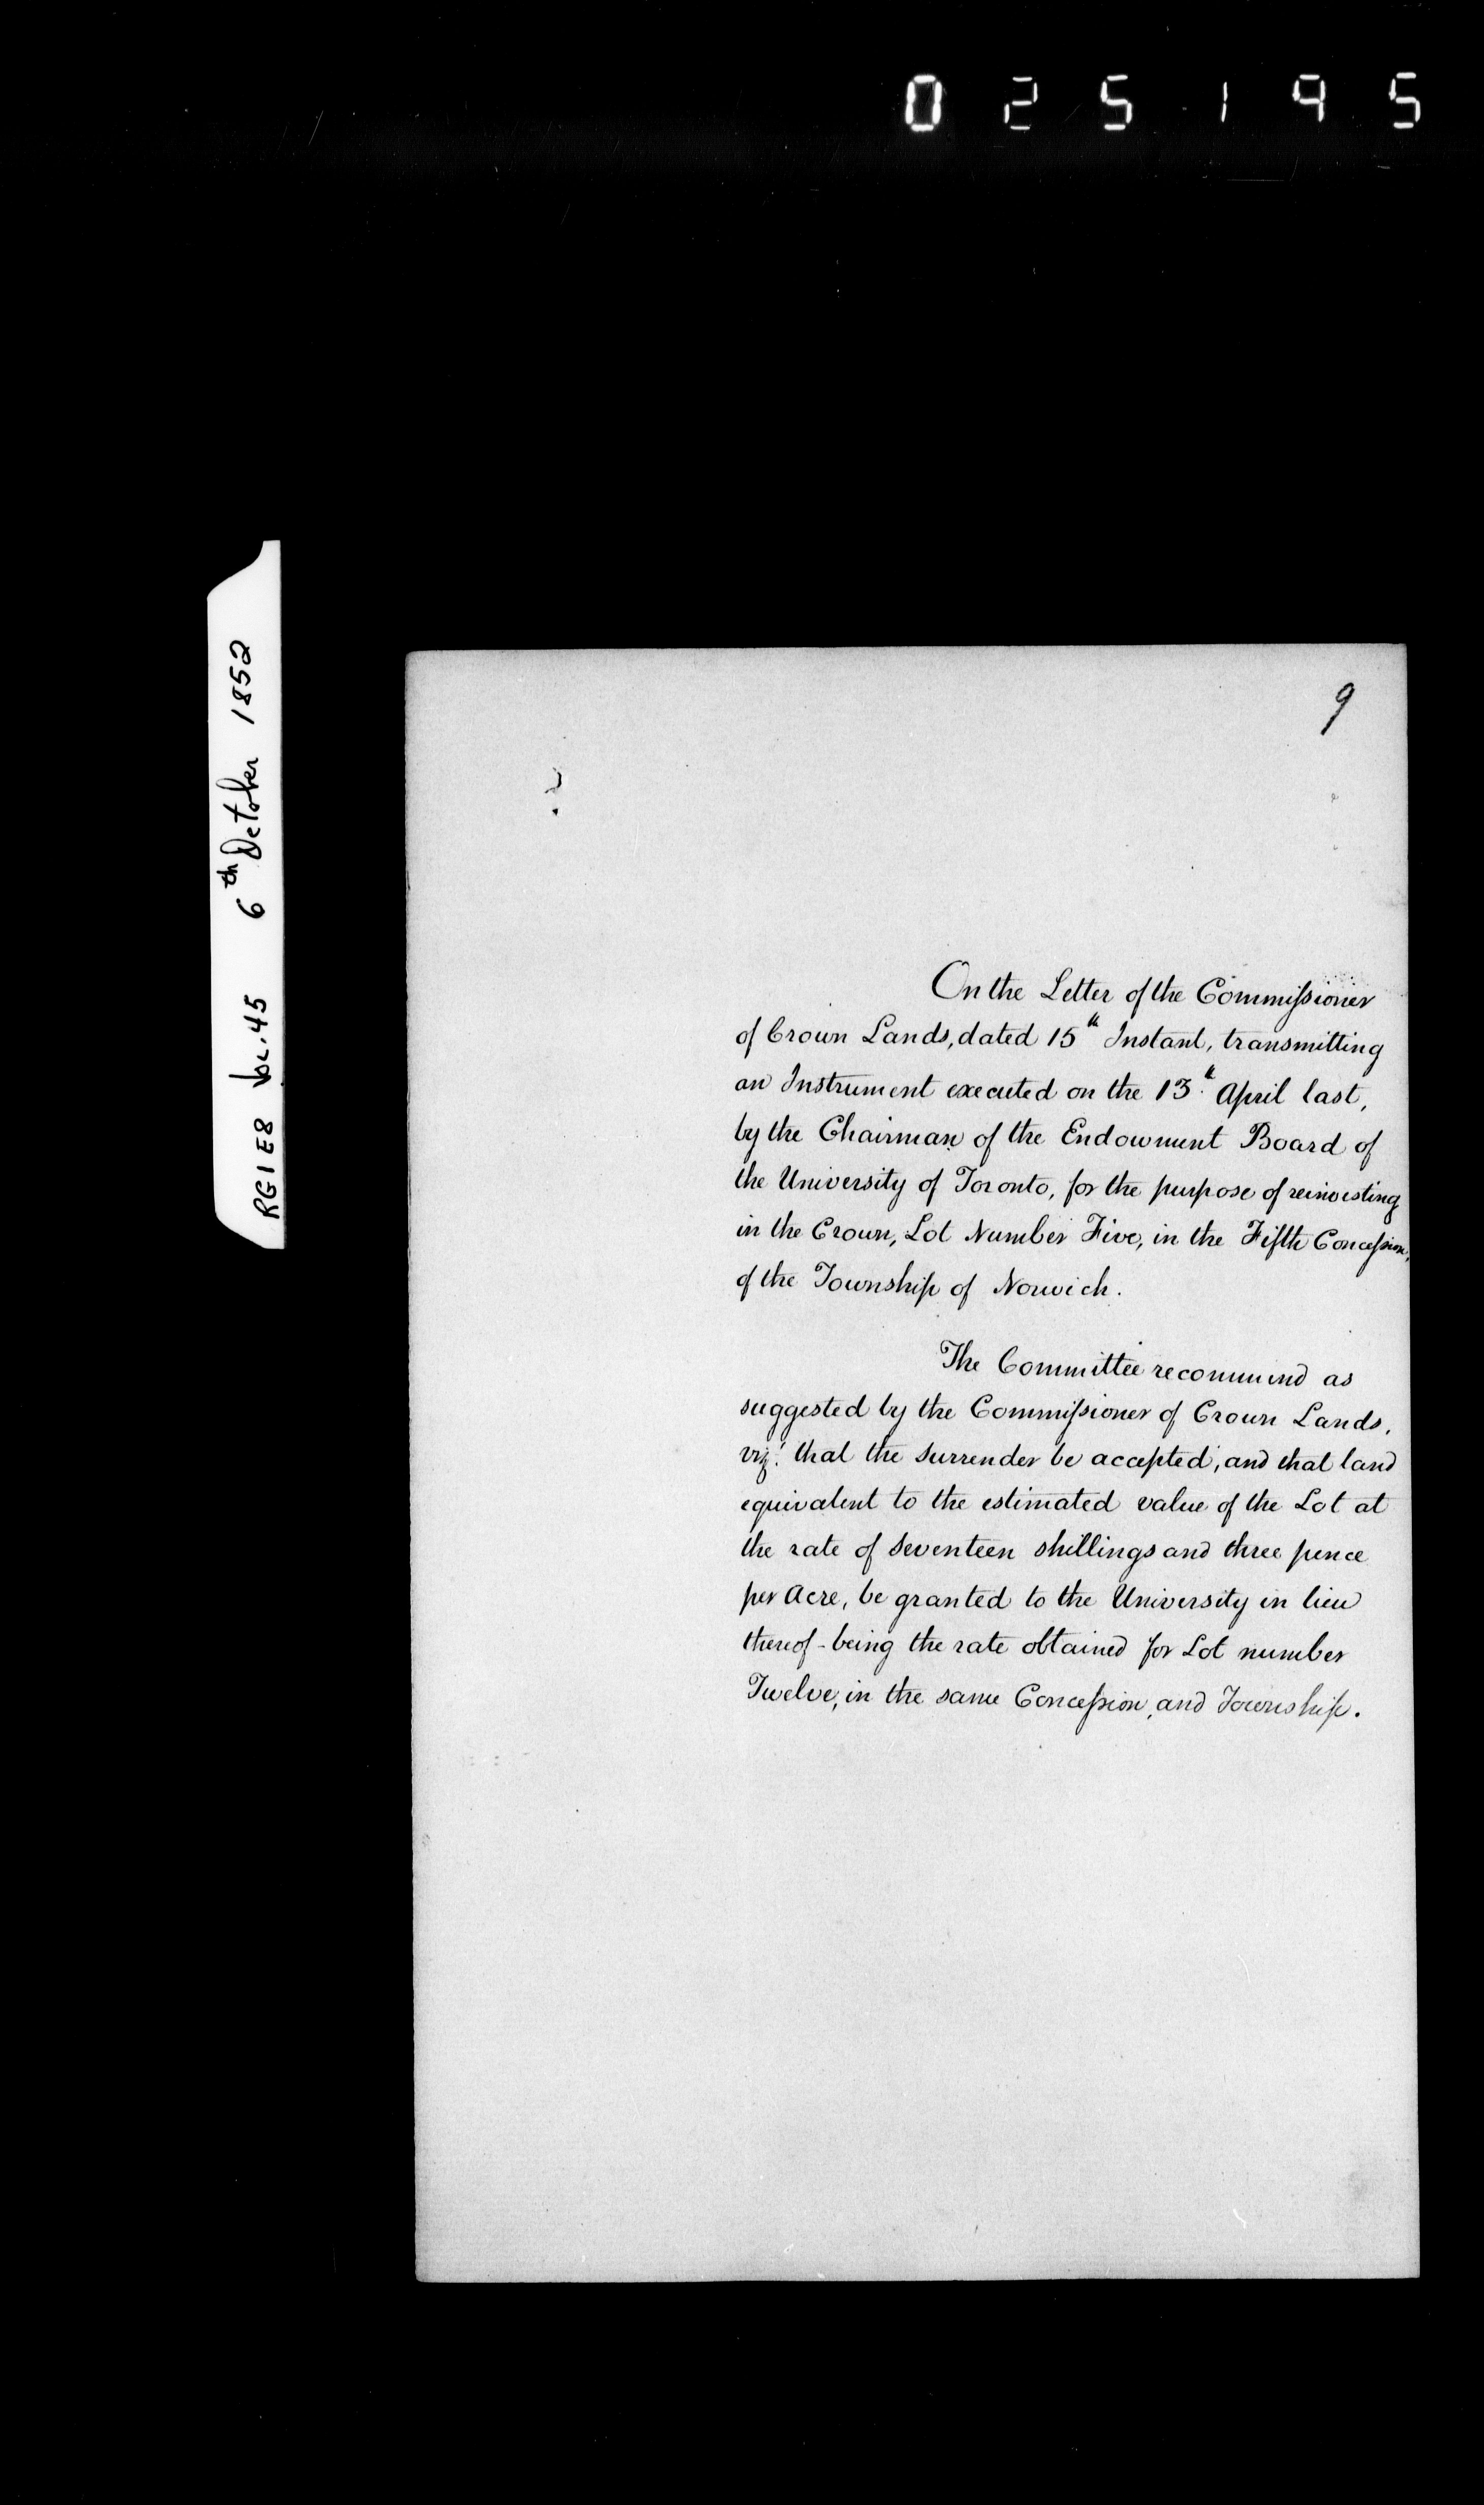 025195
RG1E8 Vol. 45 6th October 1852
9
On the Letter of the Commissioner
of Crown Lands, dated 15th Instant, transmitting
an Instrument executed on the 13th April last,
by the Chairman of the Endowment Board of
the University of Toronto, for the purpose of reinvesting
in the Crown, Lot Number Five, in the Fifth Concession,
of the Township of Norwich.
The Committee recommend as
suggested by the Commissioner of Crown Lands,
vizt. that the surrender be accepted, and that land
equivalent to the estimated value of the Lot at
the rate of seventeen shillings and three pence
per Acre, be granted to the University in lieu
thereof - being the rate obtained for Lot number
Twelve, in the same Concession, and Township.